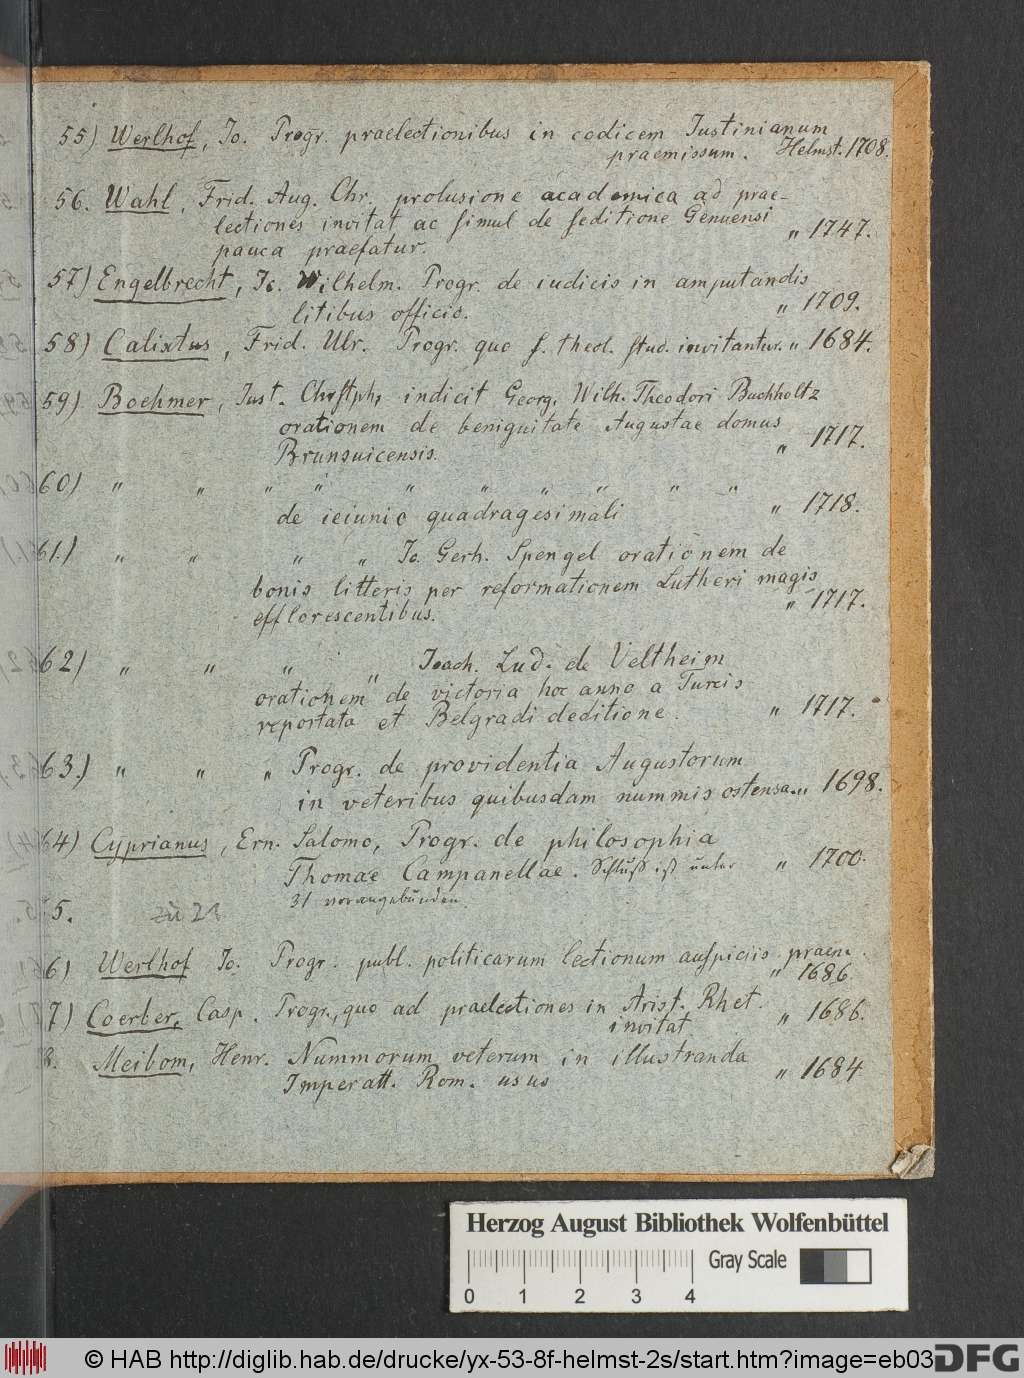 55) Werlhof, Jo. Progr. praelectionibus in codicem Justinianum
praemissum. Helmst. 1708.
56. Wahl, Frid. Aug. Chr. prolusione academica ad prae-
lectiones invitat ac simul de seditione Genuensi
pauca praefatur. " 1747.
57) Engelbrecht, Jo. Wilhelm. Progr. de iudicis in amputandis
litibus officio. " 1709.
58) Calixtus, Frid. Ulr. Progr. quo s. theol. stud. invitantur. " 1684.
59) Boehmer, Just. Chrstph, indicit Georg. Wilh. Theodori Buchholtz
orationem de benignitate Augustae domus
Brunsuicensis. " 1717.
60) " " " " " " " " " "
de ieiunio quadragesimali " 1718.
61.) " " " " Jo. Gerh. Spengel orationem de
bonis litteris per reformationem Lutheri magis
efflorescentibus. " 1717.
62) " " " " Joach. Lud. de Veltheim
orationem de victoria hoc anno a Turcis
reportata et Belgradi deditione. " 1717.
63.) " " " Progr. de providentia Augustorum
in veteribus quibusdam nummis ostensa. " 1698.
64) Cyprianus, Ern. Salomo, Progr. de philosophia
Thomae Campanellae. Schluß ist unter " 1700.
31 vorangebunden.
5. zu 23
6) Werlhof Jo. Progr. publ. politicarum lectionum auspiciis praem.
" 1686.
7) Coerber, Casp. Progr., quo ad praelectiones in Arist. Rhet.
invitat " 1686.
8. Meibom, Henr. Nummorum veterum in illustranda
Imperatt. Rom. usus " 1684
Herzog August Bibliothek Wolfenbüttel
Gray Scale
0 1 2 3 4
© HAB http://diglib.hab.de/drucke/yx-53-8f-helmst-2s/start.htm?image=eb03
DFG